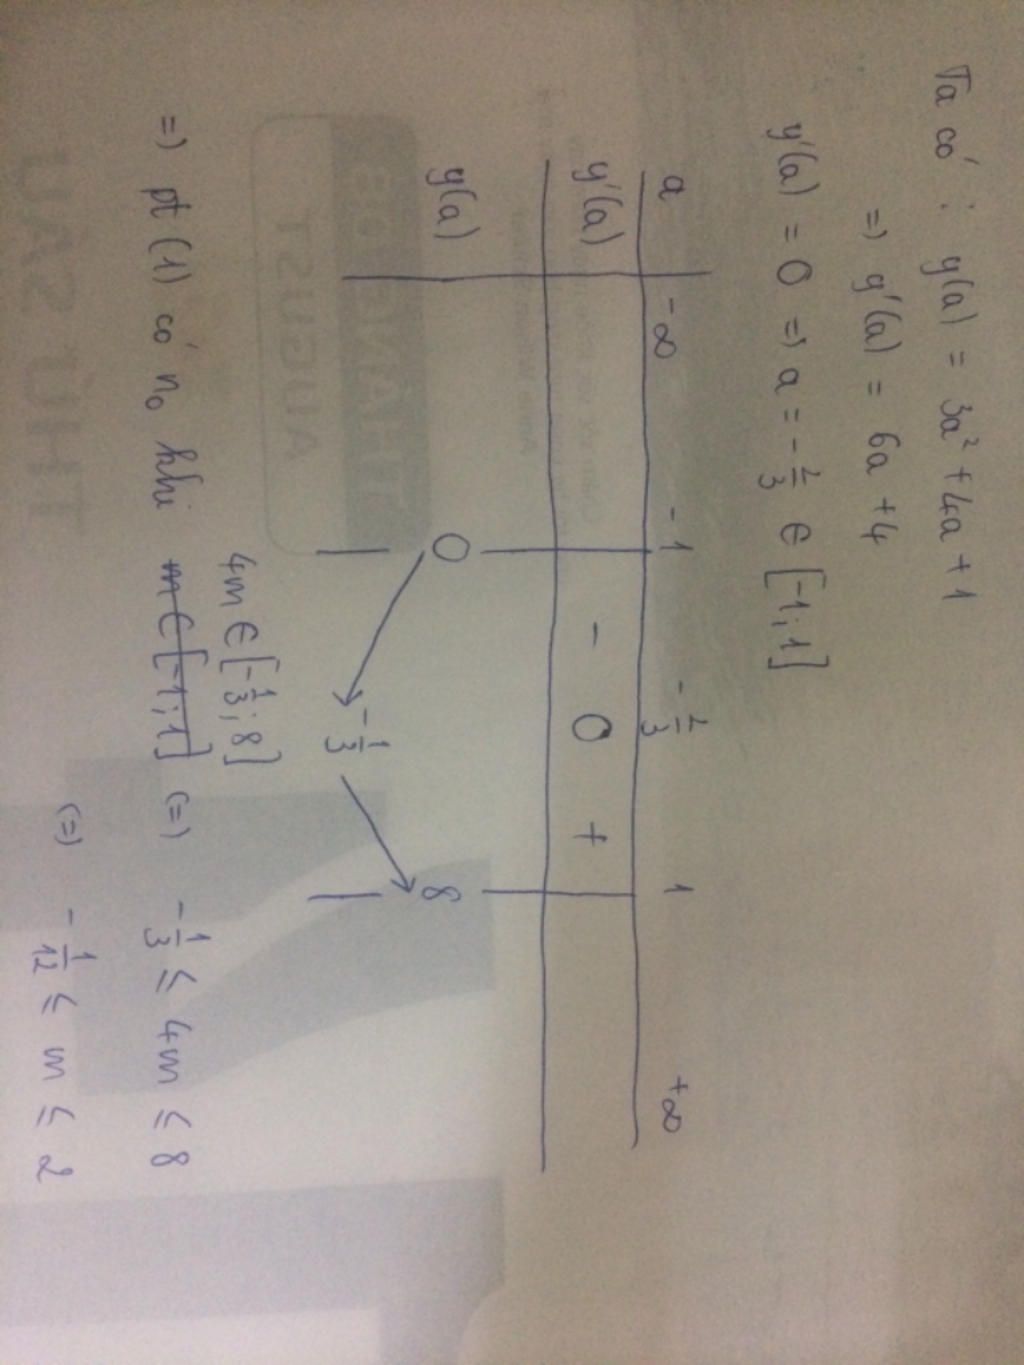 Ta có: y(a) = 3a² + 4a + 1
=) y'(a) = 6a + 4
y'(a) = 0 =) a = -2/3 ∈ [-1; 1]
a -∞ -1 -2/3 1 +∞
y'(a) - 0 +
y(a) 0 -1/3 8
4m ∈ [-1/3; 8]
=) pt (1) có n₀ khi m ∈ [-1; 1] (=) -1/3 ≤ 4m ≤ 8
(=) -1/12 ≤ m ≤ 2